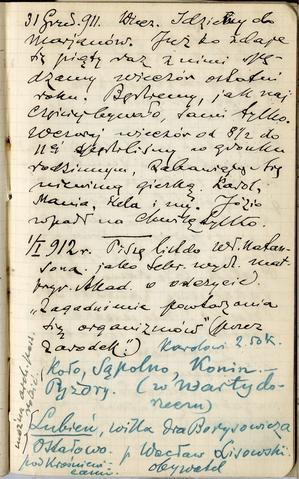 31 Grud. 911. Wiecz. Idziemy do
Marjanów. Już to zdaje
się piąty raz z nimi spę-
dzamy wieczór ostatni
roku. Będziemy, jak naj-
częściej bywało, sami tylko.
Wczoraj wieczór od 8½ do
11ej siedzieliśmy w gronku
rodzinnym, zabawiając się
niewinną gierką. Karol,
Mania, Hela i my. Józio
wpadł na chwilę tylko.
1/I 912 r. Piszę list do Wł. Natan-
sona, jako Sekr. wydz. mat.
przyr. Akad. o odczycie
"Zagadnienie powtarzania
się organizmów" (przez
zarodek!)
Karolowi 2.50 k.
Koło, Sąpolno, Konin
Pyzdry. (w Marty do-
Lubień, willa dra Borysowicza
Ostałowo. p. Wacław Lisowski
obywatel